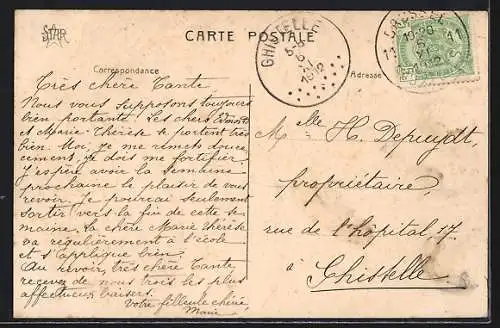 STAR
CARTE POSTALE
Correspondance
Adresse
GHISTELLES
1912
11
11
1912
Très chère Tante
Nous vous supposons toujours
bien portante. Les chers Edouard
et Marie-Thérèse se portent très
bien. Moi, je me remets douce-
cement, je dois me fortifier.
J'espère avoir la semaine
prochaine le plaisir de vous
revoir. Je pourrai seulement
sortir vers la fin de cette se-
maine. La chère Marie Thérèse
va régulièrement à l'école
et s'applique bien.
Au revoir, très chère Tante
recevez de nous trois les plus
affectueux baisers.
Votre filleule chérie,
Marie
Melle H. Depuydt,
propriétaire,
rue de l'hôpital, 17.
à Ghistelle.